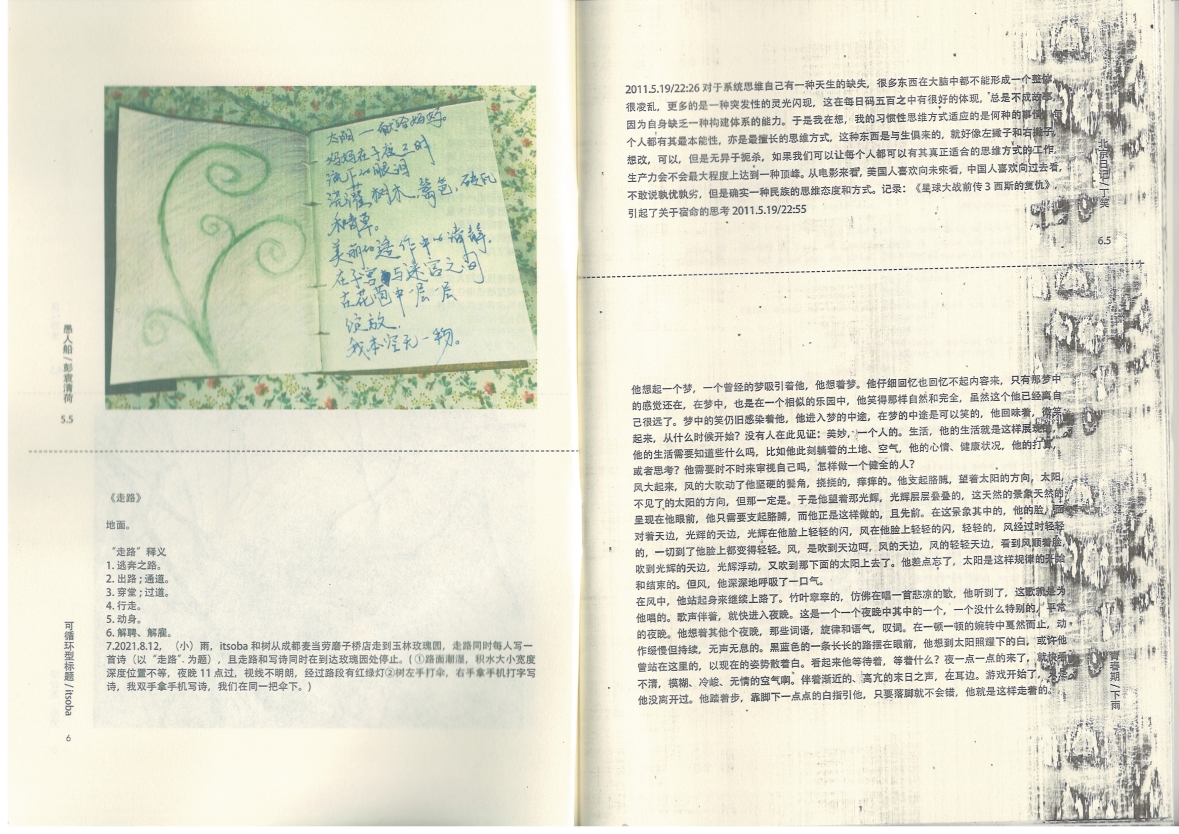 太阳—献给妈妈。
妈妈在子夜
流下的眼泪
浇灌树木，篱笆，砖瓦
和青草。
美丽的造作中的清静。
在子宫与迷宫之间
在花苞中一层一层
绽放。
我本空无一物。
愚人船/彭袁清荷
5.5
《走路》
地面。
“走路”释义
1. 逃奔之路。
2. 出路；通道。
3. 穿堂；过道。
4. 行走。
5. 动身。
6. 解聘、解雇。
7.2021.8.12，（小）雨，itsoba 和树从成都麦当劳磨子桥店走到玉林玫瑰园，走路同时每人写一
首诗（以“走路”为题），且走路和写诗同时在到达玫瑰园处停止。(①路面潮湿，积水大小宽度
深度位置不等，夜晚 11 点过，视线不明朗，经过路段有红绿灯②树左手打伞，右手拿手机打字写
诗，我双手拿手机写诗，我们在同一把伞下。)
可循环型标题/itsoba
6
2011.5.19/22:26 对于系统思维自己有一种天生的缺失，很多东西在大脑中都不能形成一个整体，
很凌乱，更多的是一种突发性的灵光闪现，这在每日码五百之中有很好的体现，总是不成故事，
因为自身缺乏一种构建体系的能力。于是我在想，我的习惯性思维方式适应的是何种的事情，每
个人都有其最本能性，亦是最擅长的思维方式，这种东西是与生俱来的，就好像左撇子和右撇子，
想改，可以，但是无异于扼杀，如果我们可以让每个人都可以有其真正适合的思维方式的工作，
生产力会不会最大程度上达到一种顶峰。从电影来看，美国人喜欢向未来看，中国人喜欢向过去看，
不敢说孰优孰劣，但是确实一种民族的思维态度和方式。记录：《星球大战前传 3 西斯的复仇》，
引起了关于宿命的思考 2011.5.19/22:55
北京日记/丁奕
6.5
他想起一个梦，一个曾经的梦吸引着他，他想着梦。他仔细回忆也回忆不起内容来，只有那梦中
的感觉还在，在梦中，也是在一个相似的乐园中，他笑得那样自然和完全，虽然这个他已经离自
己很远了。梦中的笑仍旧感染着他，他进入梦的中途，在梦的中途是可以笑的，他回味着，微笑
起来，从什么时候开始？没有人在此见证：美妙，一个人的。生活，他的生活就是这样展现的，
他的生活需要知道这些什么吗，比如他此刻躺着的土地、空气，他的心情、健康状况，他的打算，
或者思考？他需要时不时来审视自己吗，怎样做一个健全的人？
风大起来，风的大吹动了他坚硬的鬓角，挠挠的，痒痒的。他支起胳膊，望着太阳的方向，太阳，
不见了的太阳的方向，但那一定是。于是他望着那光辉，光辉层层叠叠的，这天然的景象天然的
呈现在他眼前，他只需要支起胳膊，而他正是这样做的，且先前。在这景象其中的，他的脸，面
对着天边，光辉的天边，光辉在他脸上轻轻的闪，风在他脸上轻轻的闪，轻轻的，风经过时轻轻
的，一切到了他脸上都变得轻轻。风，是吹到天边吗，风的天边，风的轻轻天边，看到风顺着脸，
吹到光辉的天边，光辉浮动，又吹到那下面的太阳上去了。他差点忘了，太阳是这样规律的开始
和结束的。但风，他深深地呼吸了一口气。
在风中，他站起身来继续上路了。竹叶窣窣的，仿佛在唱一首悲凉的歌，他听到了，这歌就是为
他唱的。歌声伴着，就快进入夜晚。这是一个一个夜晚中其中的一个，一个没什么特别的，平常
的夜晚。他想着其他个夜晚，那些词语，旋律和语气，叹词。在一顿一顿的婉转中戛然而止，动
作缓慢但持续，无声无息的。黑蓝色的一条长长的路摆在眼前，他想到太阳照耀下的白，或许他
曾站在这里的，以现在的姿势散着白。看起来他等待着，等着什么？夜一点一点的来了，就快
不清，模糊、冷峻、无情的空气啊。伴着渐近的、高亢的末日之声，在耳边。游戏开始了，
他没离开过。他踏着步，靠脚下一点点的白指引他，只要落脚就不会错，他就是这样走着的。
青春期/下雨